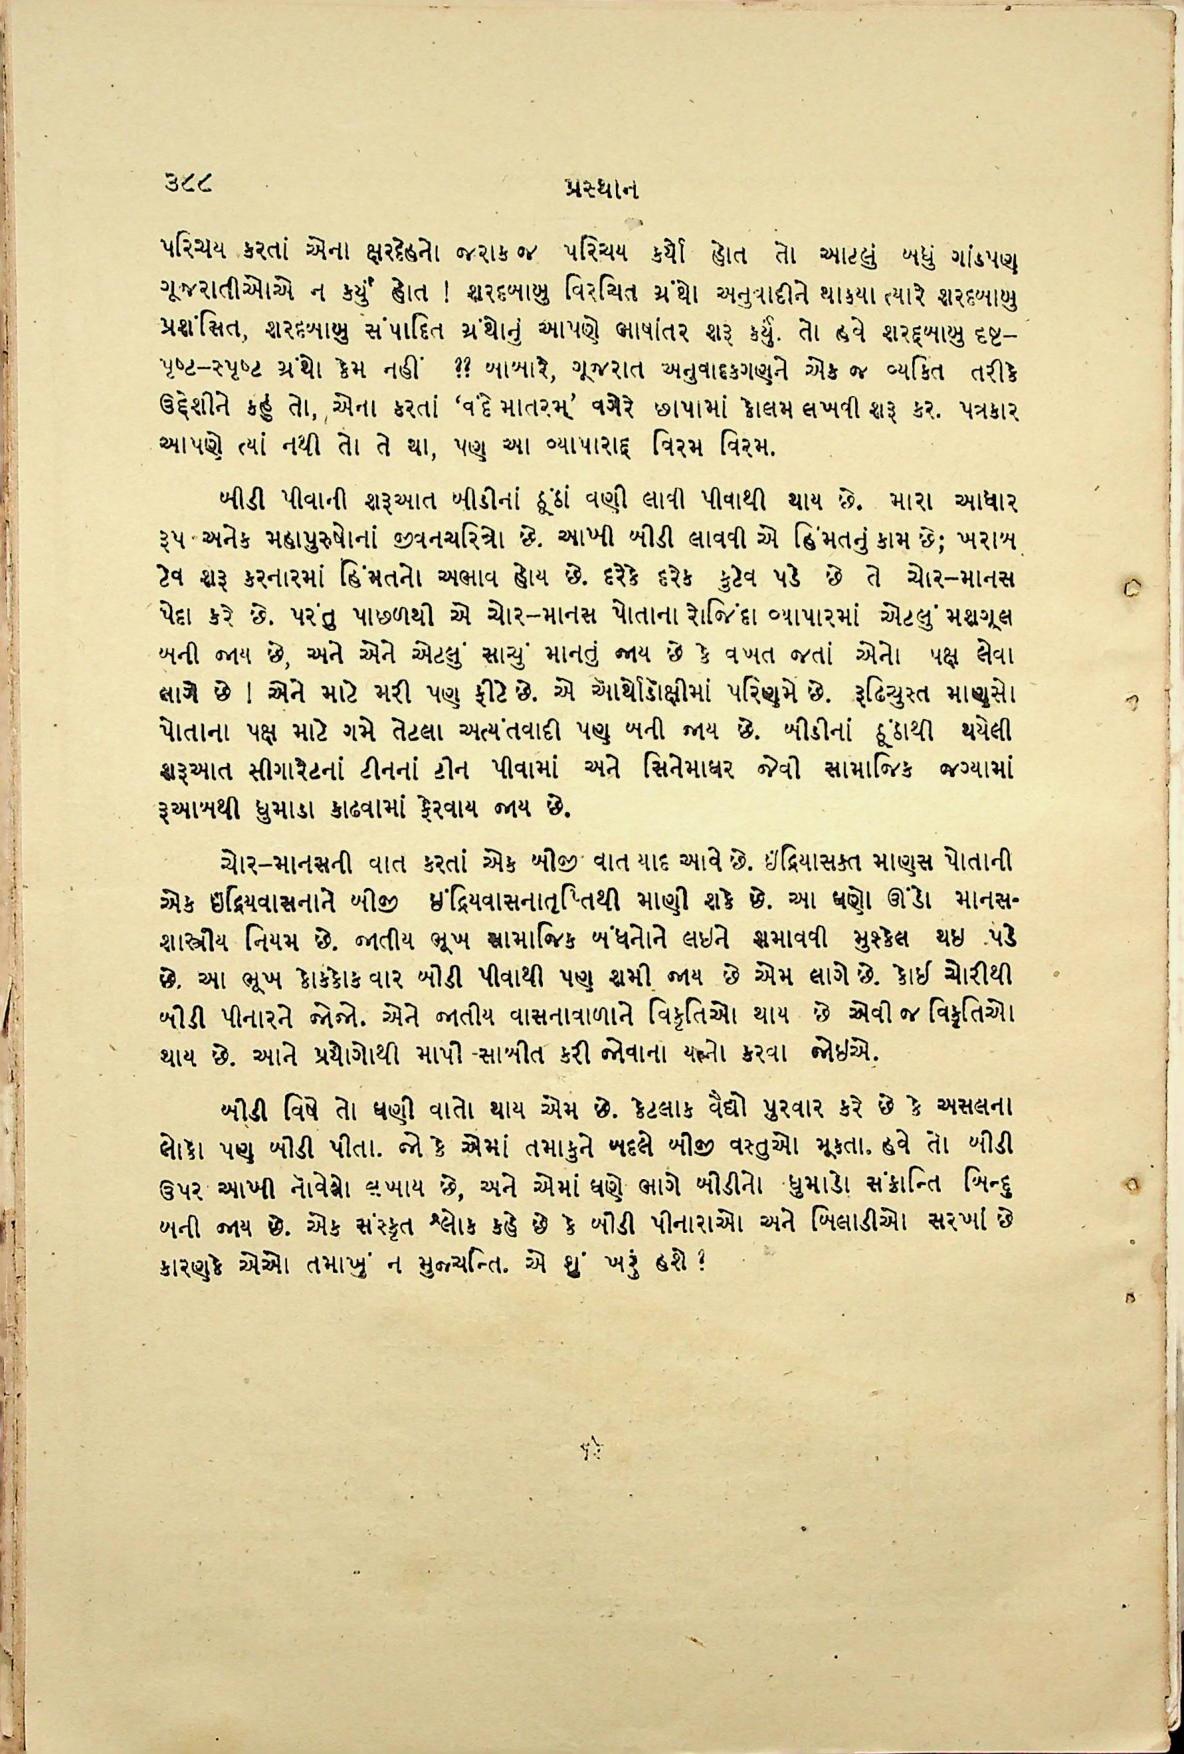 ૩૮૮
પ્રસ્થાન
પરિચય કરતાં એના ક્ષરદેહનો જરાક જ પરિચય કર્યો હોત તો આટલું બધું ગાંડપણ
ગૂજરાતીઓએ ન કર્યું હોત ! શરદબાબુ વિરચિત ગ્રંથો અનુવાદીને થાક્યા ત્યારે શરદબાબુ
પ્રશંસિત, શરદબાબુ સંપાદિત ગ્રંથોનું આપણે ભાષાંતર શરૂ કર્યું. તો હવે શરદ્બાબુ દૃષ્ટ–
પૃષ્ટ–સ્પૃષ્ટ ગ્રંથો કેમ નહીં ?? બાબારે, ગૂજરાત અનુવાદકગણને એક જ વ્યકિત તરીકે
ઉદ્દેશીને કહું તો, એના કરતાં ‘વંદે માતરમ્’ વગેરે છાપામાં કોલમ લખવી શરૂ કર. પત્રકાર
આપણે ત્યાં નથી તો તે થા, પણ આ વ્યાપારાદ્ વિરમ વિરમ.
બીડી પીવાની શરૂઆત બીડીનાં ઠૂંઠાં વણી લાવી પીવાથી થાય છે. મારા આધાર
રૂપ અનેક મહાપુરુષોનાં જીવનચરિત્રો છે. આખી બીડી લાવવી એ હિંમતનું કામ છે; ખરાબ
ટેવ શરૂ કરનારમાં હિંમતનો અભાવ હોય છે. દરેકે દરેક કુટેવ પડે છે તે ચોર–માનસ
પેદા કરે છે. પરંતુ પાછળથી એ ચોર–માનસ પોતાના રોજિંદા વ્યાપારમાં એટલું મશગૂલ
બની જાય છે, અને એને એટલું સાચું માનતું જાય છે કે વખત જતાં એનો પક્ષ લેવા
લાગે છે ! એને માટે મરી પણ ફીટે છે. એ ઑર્થોડૉક્ષીમાં પરિણમે છે. રૂઢિચુસ્ત માણસો
પોતાના પક્ષ માટે ગમે તેટલા અત્યંતવાદી પણ બની જાય છે. બીડીનાં ઠૂંઠાથી થયેલી
શરૂઆત સીગારેટનાં ટીનનાં ટીન પીવામાં અને સિનેમાઘર જેવી સામાજિક જગ્યામાં
રૂઆબથી ધુમાડા કાઢવામાં ફેરવાય જાય છે.
ચોર–માનસની વાત કરતાં એક બીજી વાત યાદ આવે છે. ઇંદ્રિયાસક્ત માણસ પોતાની
એક ઇંદ્રિયવાસનાને બીજી ઇંદ્રિયવાસનાતૃપ્તિથી માણી શકે છે. આ ઘણો ઊંડો માનસ-
શાસ્ત્રીય નિયમ છે. જાતીય ભૂખ સામાજિક બંધનોને લઇને શમાવવી મુશ્કેલ થઇ પડે
છે. આ ભૂખ કોકકોક વાર બીડી પીવાથી પણ શમી જાય છે એમ લાગે છે. કોઇ ચોરીથી
બીડી પીનારને જોજો. એને જાતીય વાસનાવાળાને વિકૃતિઓ થાય છે એવી જ વિકૃતિઓ
થાય છે. આને પ્રયોગોથી માપી સાબીત કરી જોવાના યત્નો કરવા જોઇએ.
બીડી વિષે તો ઘણી વાતો થાય એમ છે. કેટલાક વૈદ્યો પુરવાર કરે છે કે અસલના
લોકો પણ બીડી પીતા. જો કે એમાં તમાકુને બદલે બીજી વસ્તુઓ મૂકતા. હવે તો બીડી
ઉપર આખી નૉવેલો લખાય છે, અને એમાં ઘણે ભાગે બીડીનો ધુમાડો સંક્રાન્તિ બિન્દુ
બની જાય છે. એક સંસ્કૃત શ્લોક કહે છે કે બીડી પીનારાઓ અને બિલાડીઓ સરખાં છે
કારણકે એઓ તમાખું ન મુઞ્ચન્તિ. એ શું ખરું હશે ?